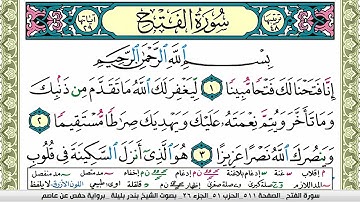 سُورَةُ الفَتْحِ
بِسْمِ ٱللَّهِ ٱلرَّحْمَٰنِ ٱلرَّحِيمِ
إِنَّا فَتَحْنَا لَكَ فَتْحًا مُّبِينًا ١ لِّيَغْفِرَ لَكَ ٱللَّهُ مَا تَقَدَّمَ مِن ذَنۢبِكَ
وَمَا تَأَخَّرَ وَيُتِمَّ نِعْمَتَهُۥ عَلَيْكَ وَيَهْدِيَكَ صِرَٰطًا مُّسْتَقِيمًا ٢
وَيَنصُرَكَ ٱللَّهُ نَصْرًا عَزِيزًا ٣ هُوَ ٱلَّذِىٓ أَنزَلَ ٱلسَّكِينَةَ فِى قُلُوبِ
سورة الفتح - الصفحة ٥١١ - الحزب ٥١ - الجزء ٢٦ - بصوت الشيخ بندر بليلة - برواية حفص عن عاصم